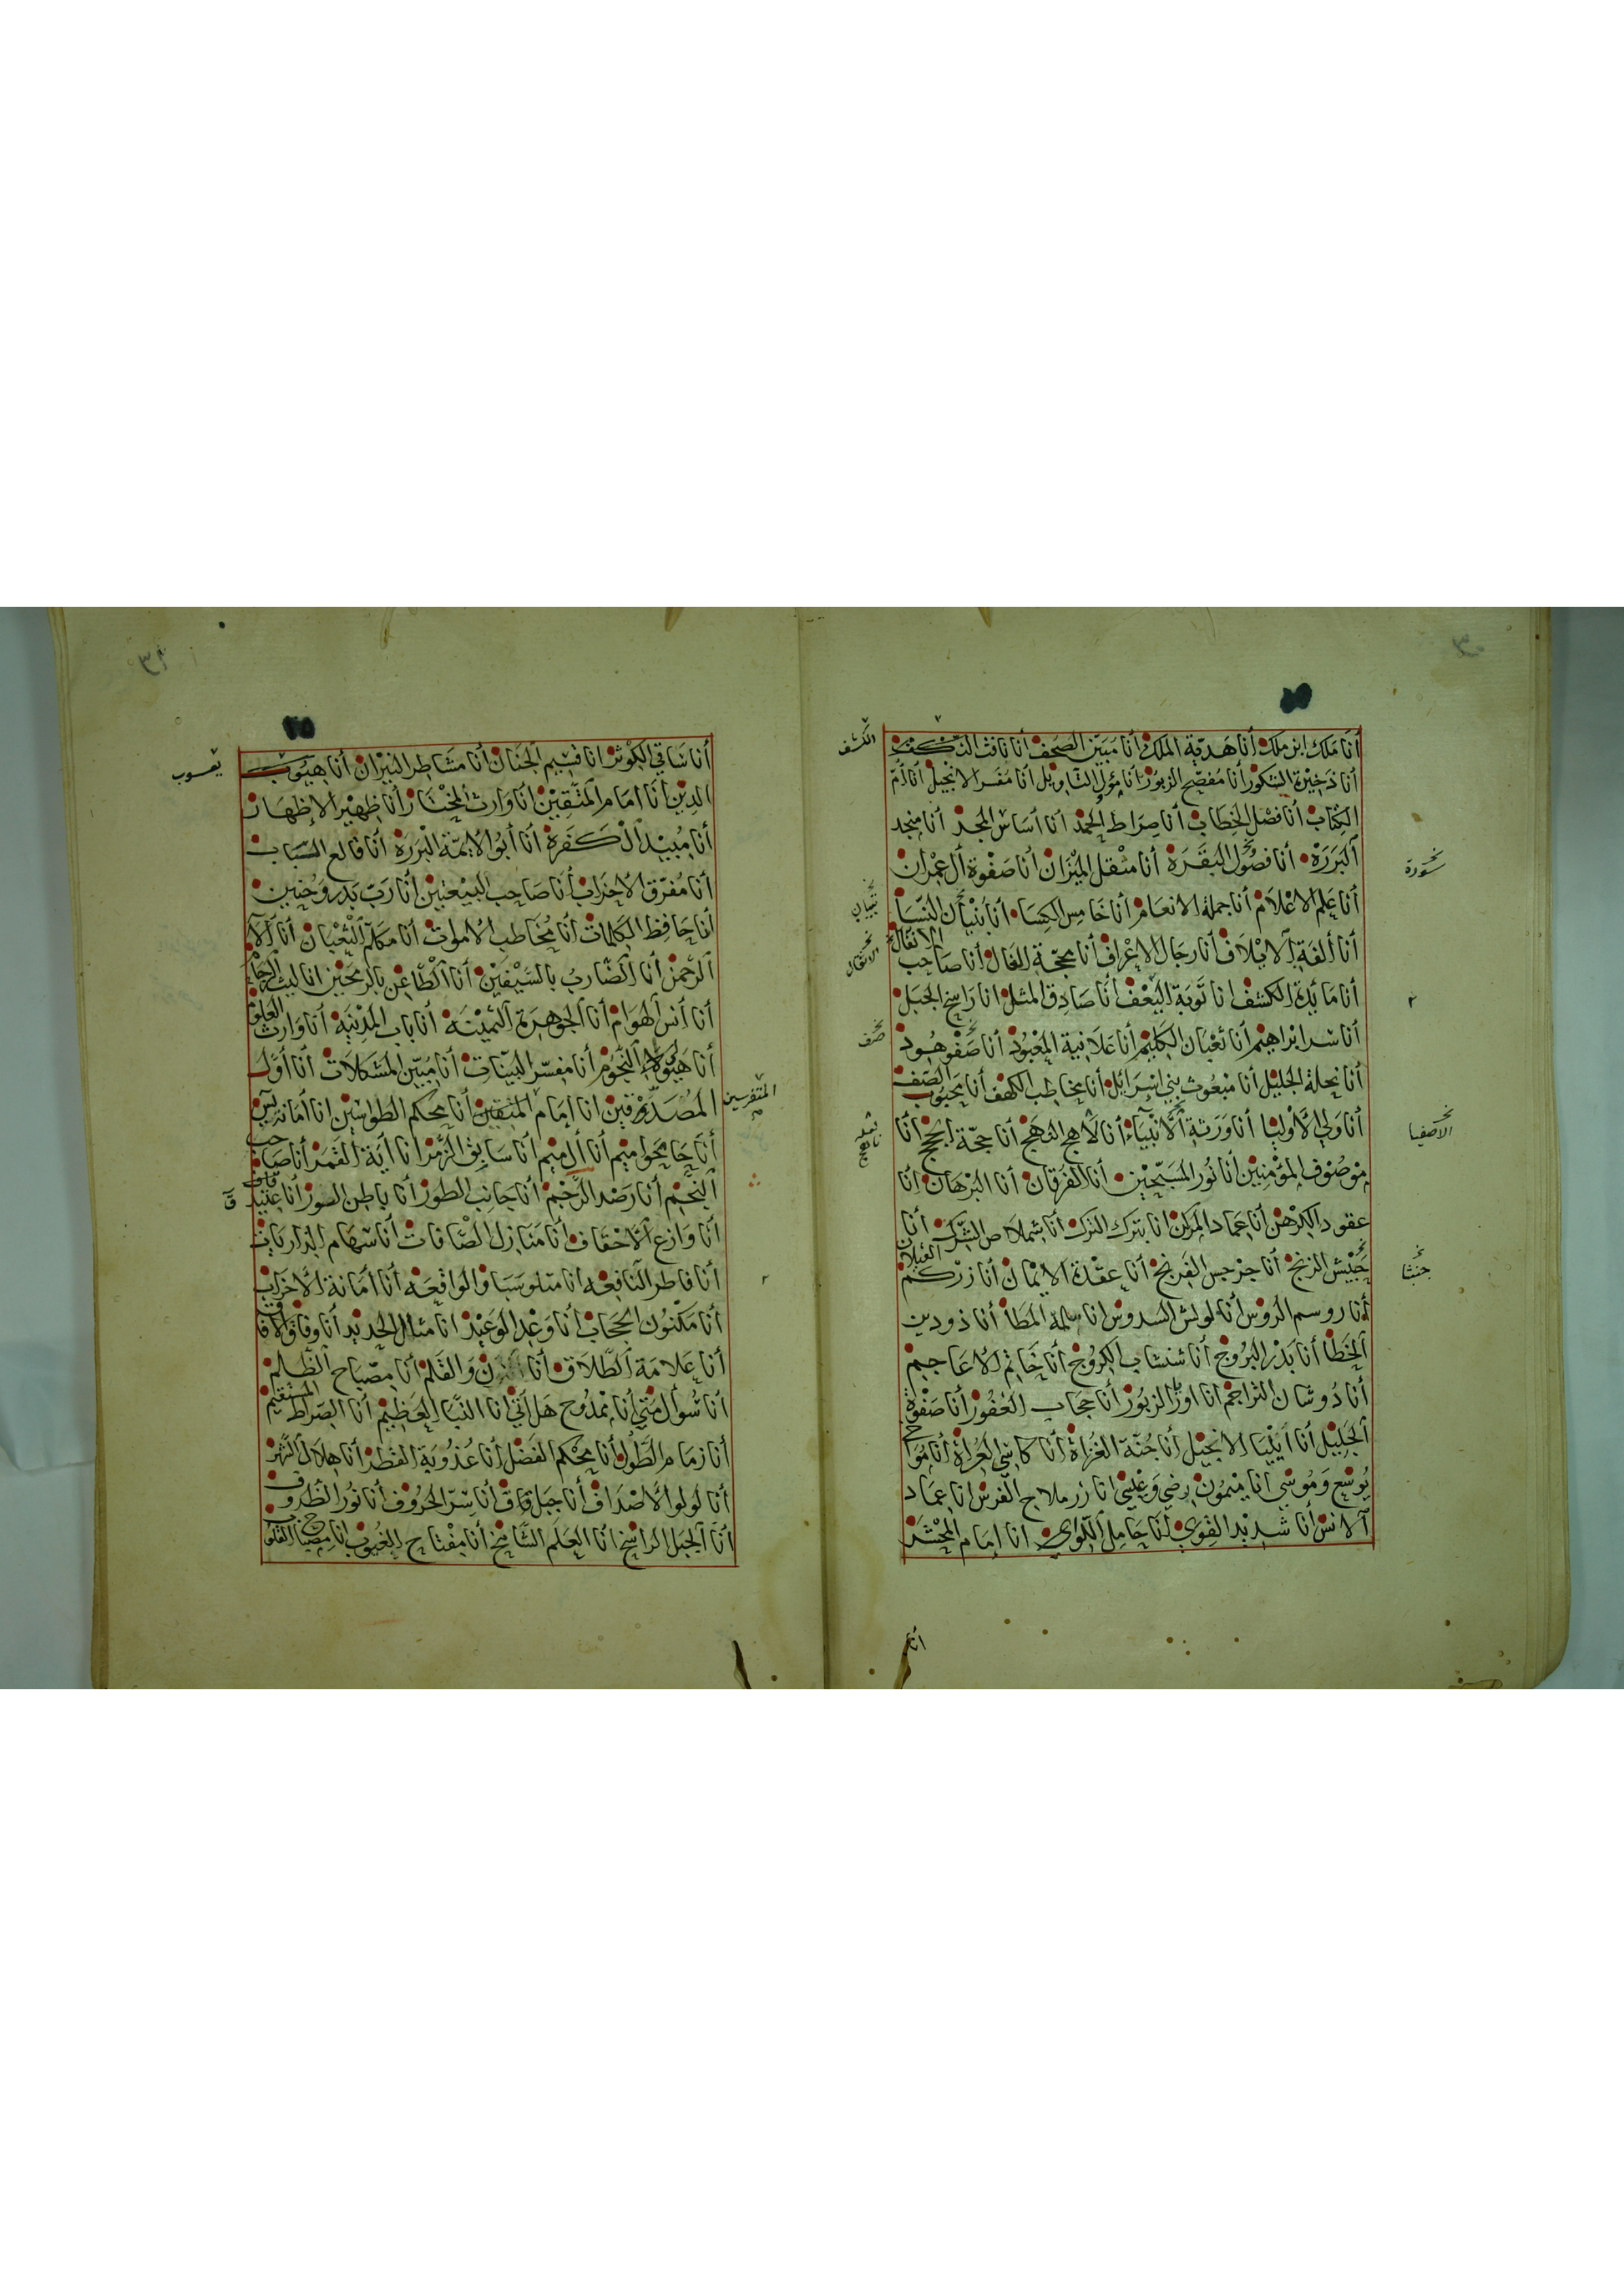 أنا ملك ابن ملك أنا هدية الملك أنا مبين الصحف أنا
أنا ذخيرة الشكور أنا مفصح الزبور أنا مؤول التاويل أنا مفسر الانجيل أنا أم
الكتاب أنا فصل الخطاب أنا صراط الحمد أنا أساس المجد أنا منجد
البررة أنا فصول البقرة أنا مثقل الميزان أنا صفوة آل عمران
أنا علم الاعلام أنا جملة الانعام أنا خامس الكسا أنا بنيان النسا
أنا ألفة الايلاف أنا رجال الاعراف أنا محجة الفال أنا صاحب الانفال
أنا مائدة الكشف انا توبة أنا صادق المثل انا راسخ الجبل
أنا سر ابراهيم أنا ثعبان الكليم أنا علانية المعبود أنا صفو هود
أنا نحلة الجليل أنا مبعوث بني اسرائيل أنا مخاطب الكهف أنا محبوب الصف
أنا ولي الأوليا أنا ورثة الأنبياء أنا لاهج النهج أنا حجة الحجج أنا
موصوف المؤمنين أنا نور المسبحين أنا الفرقان أنا البرهان انا
عقود الكرهن أنا عماد المركن انا بترك الترك أنا شملاص الشرك أنا
جبيش الزنج أنا جرجس الفرنج أنا عقدة الايمان أنا زركم الغيلان
أنا روسم الروس أنا لولش السدوس انا سلمة المطا أنا ذودين
الخطا أنا بدر البروج أنا شنشاب الكروج أنا خاتم الأعاجيم
أنا دوشان التراجم انا اوريا الزبور أنا حجاب الغفور أنا صفوة
الجليل أنا أيليا الانجيل أنا جنة الغزاة أنا كاشي العراة أنا مواخي
يوشع وموسى أنا ميمون رضي وعيسى انا زر ملاح الفرس انا عماد
الانس أنا شديد القوى أنا حامل اللوا أنا إمام المحشر
انا
الكشف
تبيان
الانتقال
صف
سورة
الاصفيا
جنشا
أنا ساقي الكوثر انا قسيم الجنان أنا مشاطر النيران أنا
الدين أنا امام المتقين أنا وارث المختار أنا ظهير الإظهار
أنا مبيد الكفرة أنا أبو الايمة البررة أنا قالع الباب
أنا مفرق الأحزاب أنا صاحب البيعتين أنا رب بدر وحنين
أنا حافظ الكلمات أنا مخاطب الأموات أنا مكلم الثعبان أنا آلآ
الرحمن أنا الضارب بالسيفين أنا الطاعن بالرمحين انا ليث الزحام
أنا أنس الهوام أنا الجوهرة الثمينة أنا باب المدينة أنا وارث العلوم
أنا هيولا النجوم أنا مفسر البينات أنا مبين المشكلات أنا أول
المصدقين انا إمام المتقين أنا محكم الطواسين انا أمانة يس
أنا حا محواميم أنا أل ميم أنا سابق الزمر انا آية القمر أنا صاحب
النجم أنا رصد الرجم أنا جانب الطور أنا باطن السور أنا عتيد قاف
أنا وازع الأحقاف أنا منازل الصافات أنا سهام الذاريات
أنا فاطر النافعه أنا متلو سبا والواقعه أنا أمانة الأحزاب
أنا مكنون الحجاب أنا وعد الوعيد أنا مثال الحديد أنا وفاق الافاق
أنا علامة الطلاق أنا ن والقلم أنا مصباح الظلم
أنا سؤال متى أنا ممدوح هل أتى أنا النبا العظيم أنا الصراط المستقيم
أنا زمام الطول أنا محكم الفضل أنا عذوبة القطر أنا هلال الشهر
أنا لولو الأصداف أنا جبل قاف أنا سر الحروف أنا نور الظروف
أنا الجبل الراسخ أنا العلم الشامخ أنا مفتاح الغيوب انا مصباح القلوب
يعسوب
المتفرسين
ق